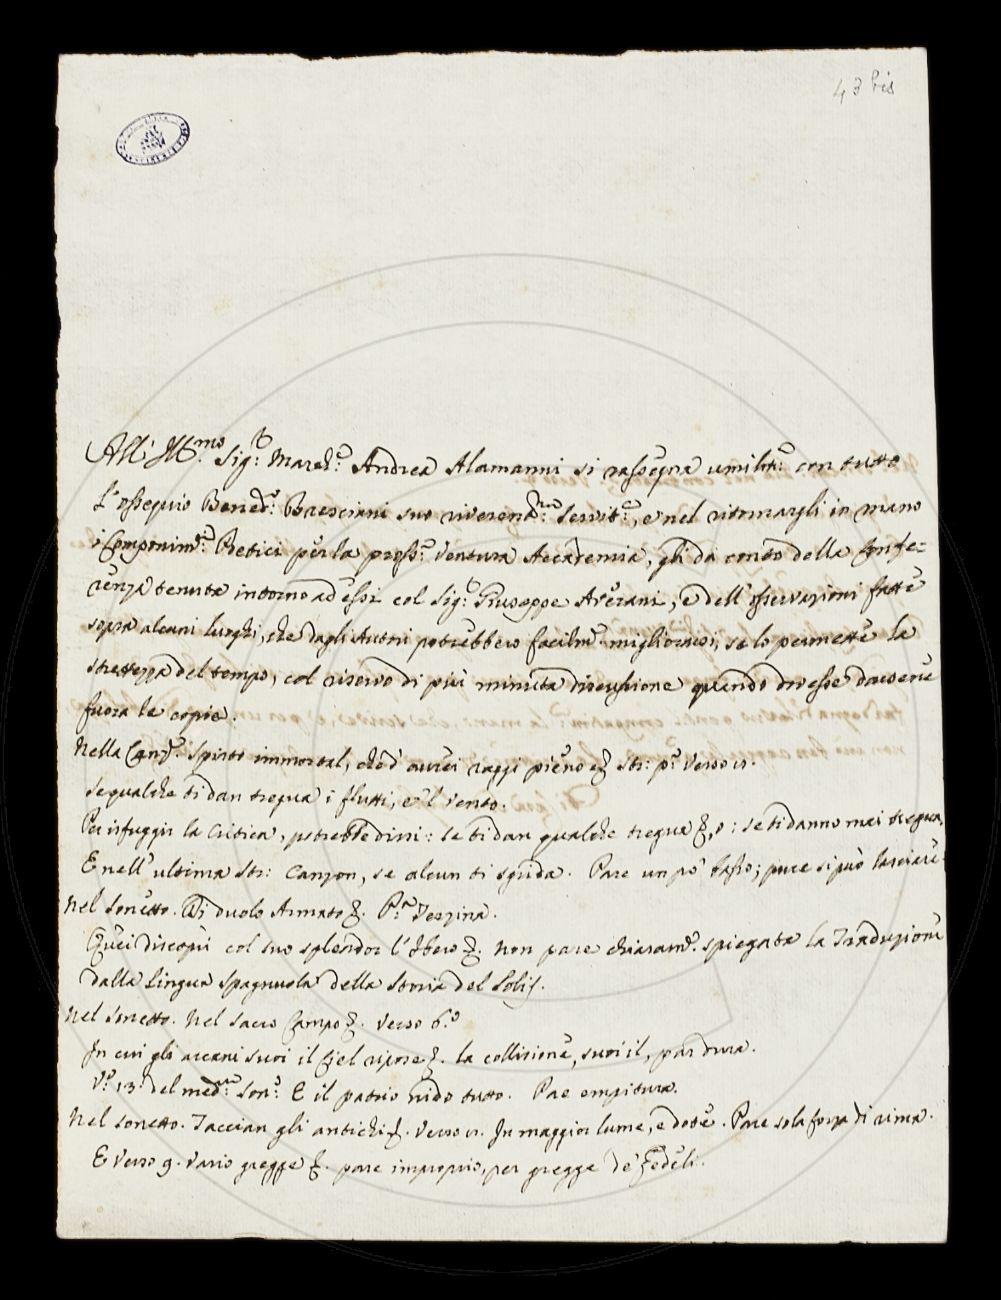 43 bis
All' Ill.mo Sig.r March.e Andrea Alamanni si rassegna umilite.e con tutto
l'ossequio Bened.o Bresciani suo riverend.mo Servit.e, e nel ritornargli in mano
i Componim.ti Poetici per la pross.a ventura Accademia, gli dà conto della Confe=
renza tenuta intorno ad essi col Sig.r Giuseppe Averani, e dell'osservazioni fatte
sopra alcuni luoghi, che dagli Autori potrebbero facilm.e migliorarsi, se lo permette la
strettezza del tempo, col riservo di più minuta discussione quando dovesse darsene
fuora le copie.
Nella Canz.e Spirto immortal, che d'aurei raggi pieno &. str: p.a Verso 12.
Se qualche ti dan tregua i flutti, e 'l vento.
Per isfuggir la Critica, potrebbe dirsi: Se ti dan qualche tregua &, o: se ti danno mai tregua.
E nell'ultima str: Canzon, se alcun ti sgrida. Pare un po' basso; pure si può lasciare.
Nel Sonetto. Di duolo Armato &. P.a Terzina.
Quei discoprì col suo splendor l'Ibero &. non pare chiaram.e spiegata la Traduzione
dalla Lingua Spagnuola della Storia del Solis.
Nel Sonetto. Nel sacro Campo &. Verso 6.o
In cui gli arcani suoi il Ciel ripose &. la collisione, suoi il, par dura.
V.o 13. del med.mo Son.o E il patrio nido tutto. Par empitura.
Nel Sonetto. Taccian gli antichi &. Verso 12. In maggior lume, e dote. Pare sola forza di rima.
E Verso 9. Vario gregge &. pare improprio, per gregge de' fedeli.